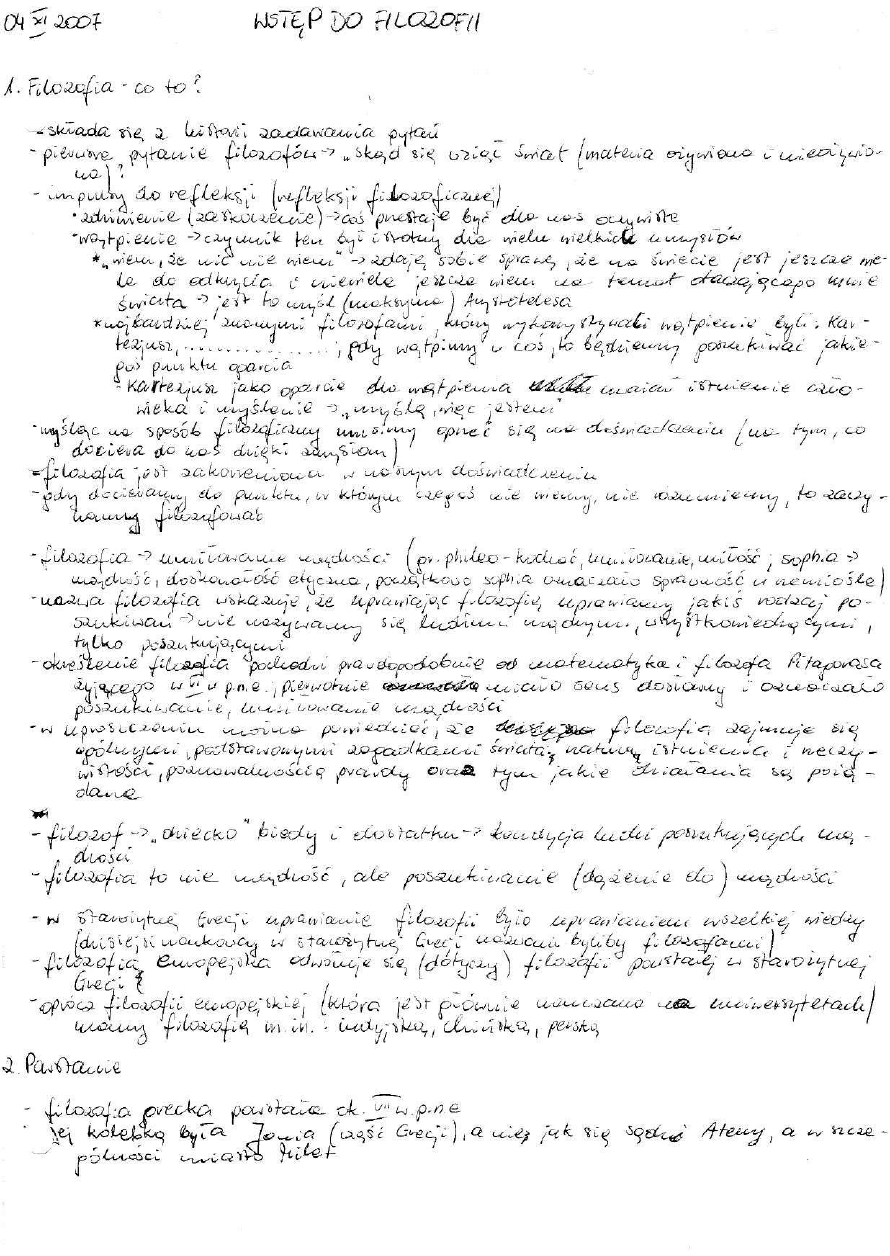 04 XI 2007 WSTĘP DO FILOZOFII
1. Filozofia - co to?
- składa się z historii zadawania pytań
- pierwsze pytanie filozofów → „skąd się wziął świat (materia ożywiona i nieożywio-
na)?
- impulsy do refleksji (refleksji filozoficznej)
• zdziwienie (zaskoczenie) → coś przestaje być dla nas oczywiste
• wątpienie → czynnik ten był istotny dla wielu wielkich umysłów
* „wiem, że nic nie wiem" → zdaję sobie sprawę, że na świecie jest jeszcze wie-
le do odkrycia i niewiele jeszcze wiem na temat otaczającego mnie
świata → jest to myśl (maksyma) Arystotelesa
* najbardziej znanymi filozofami, którzy wykorzystywali wątpienie byli: Kar-
tezjusz, ..............; gdy wątpimy w coś, to będziemy poszukiwać jakie-
goś punktu oparcia
- Kartezjusz jako oparcie dla wątpienia miał istnienie czło-
wieka i myślenie → „myślę, więc jestem"
- myśląc na sposób filozoficzny musimy oprzeć się na doświadczeniu (na tym, co
dociera do nas dzięki zmysłom)
- filozofia jest zakorzeniona w naszym doświadczeniu
- gdy docieramy do punktu, w którym czegoś nie wiemy, nie rozumiemy, to zaczy-
namy filozofować
- filozofia → umiłowanie mądrości (gr. phileo - kochać, umiłowanie, miłość; sophia →
mądrość, doskonałość etyczna, początkowo sophia oznaczało sprawność w rzemiośle)
- nazwa filozofia wskazuje, że uprawiając filozofię uprawiamy jakiś rodzaj po-
szukiwań → nie nazywamy się ludźmi mądrymi, wszystkowiedzącymi,
tylko poszukującymi
- określenie filozofia pochodzi prawdopodobnie od matematyka i filozofa Pitagorasa
żyjącego w VI w p.n.e.; pierwotnie miało sens dosłowny i oznaczało
poszukiwanie, umiłowanie mądrości
- w uproszczeniu można powiedzieć, że filozofia zajmuje się
ogólnymi, podstawowymi zagadkami świata, naturą istnienia i rzeczy-
wistości, poznawalnością prawdy oraz tym jakie działania są pożą-
dane
- filozof → „dziecko" biedy i dostatku → kondycja ludzi poszukujących mą-
drości
- filozofia to nie mądrość, ale poszukiwanie (dążenie do) mądrości
- w starożytnej Grecji uprawianie filozofii było uprawianiem wszelkiej wiedzy
(dzisiejsi naukowcy w starożytnej Grecji nazwani byliby filozofami)
- filozofia europejska odwołuje się (dotyczy) filozofii powstałej w starożytnej
Grecji
- oprócz filozofii europejskiej (która jest głównie nauczana na uniwersytetach)
mamy filozofię m.in.: indyjską, chińską, perską
2. Powstanie
- filozofia grecka powstała ok. VII w. p.n.e
- jej kolebką była Jonia (część Grecji), a nie jak się sądzi Ateny, a w szcze-
gólności miasto Milet